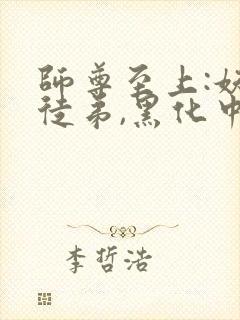 師尊至上:妖
徒弟,黑化中
李哲浩